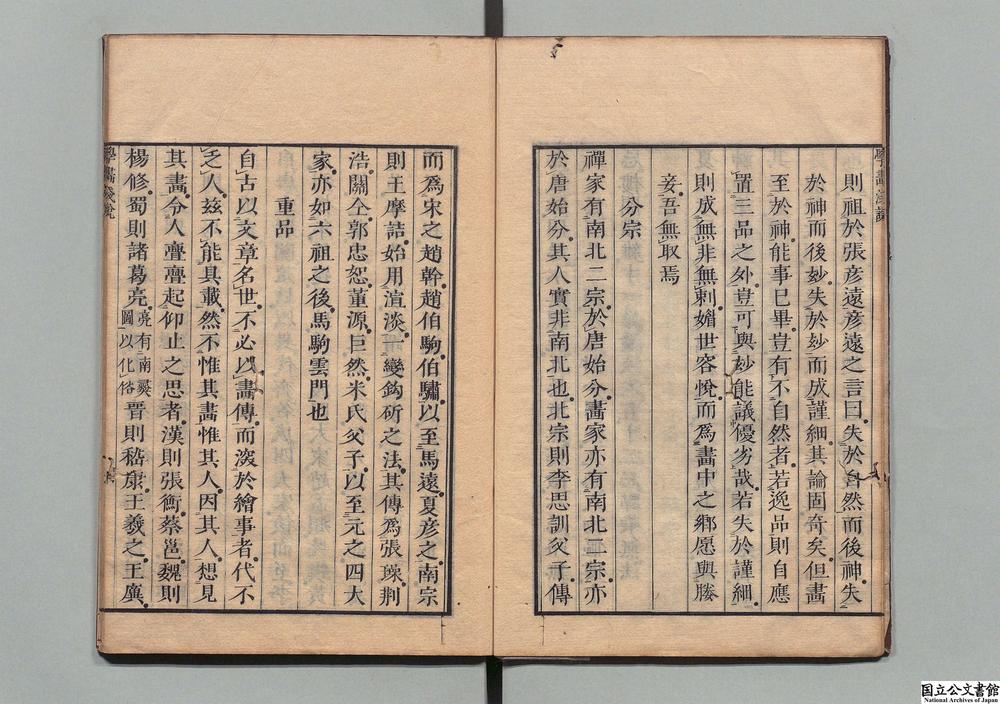 則祖於張彥遠彥遠之言曰失於自然而後神失
於神而後妙失於妙而成謹細其論固奇矣但畫
至於神能事已畢豈有不自然者若逸品則自應
置三品之外豈可與妙能議優劣哉若失於謹細
則成無非無刺媚世容悅而為畫中之鄉愿與媵
妾吾無取焉
分宗
禪家有南北二宗於唐始分畫家亦有南北二宗亦
於唐始分其人實非南北也北宗則李思訓父子傳
而為宋之趙幹趙伯駒伯驌以至馬遠夏彥之南宗
則王摩詰始用渲淡一變鈎斫之法其傳為張璪荆
浩關仝郭忠恕董源巨然米氏父子以至元之四大
家亦如六祖之後馬駒雲門也
重品
自古以文章名世不必以畫傳而深於繪事者代不
乏人茲不能具載然不惟其畫惟其人因其人想見
其畫令人亹亹起仰止之思者漢則張衡蔡邕魏則
楊修蜀則諸葛亮亮有南彝圖以化俗晉則嵇康王羲之王廙
學畫淺說
國立公文書館
National Archives of Japan